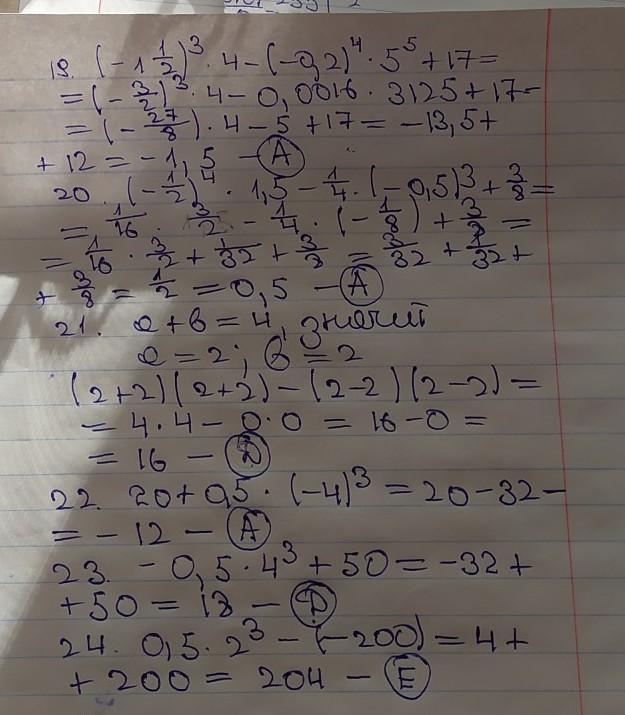 19. (-1 1/2)³ · 4 - (-0,2)⁴ · 5⁵ + 17 =
= (-3/2)³ · 4 - 0,0016 · 3125 + 17 -
= (-27/8) · 4 - 5 + 17 = -13,5 +
+ 12 = -1,5 - A
20. (-1/2)⁴ · 1,5 - 1/4 · (-0,5)³ + 3/8 =
= 1/16 · 3/2 - 1/4 · (-1/8) + 3/8 =
= 1/16 · 3/2 + 1/32 + 3/8 = 3/32 + 1/32 +
+ 3/8 = 1/2 = 0,5 - A
21. a + b = 4, значит
a = 2; b = 2
(2+2)(2+2) - (2-2)(2-2) =
= 4 · 4 - 0 · 0 = 16 - 0 =
= 16 - D
22. 20 + 0,5 · (-4)³ = 20 - 32 -
= - 12 - A
23. - 0,5 · 4³ + 50 = -32 +
+ 50 = 18 - D
24. 0,5 · 2³ - (-200) = 4 +
+ 200 = 204 - E